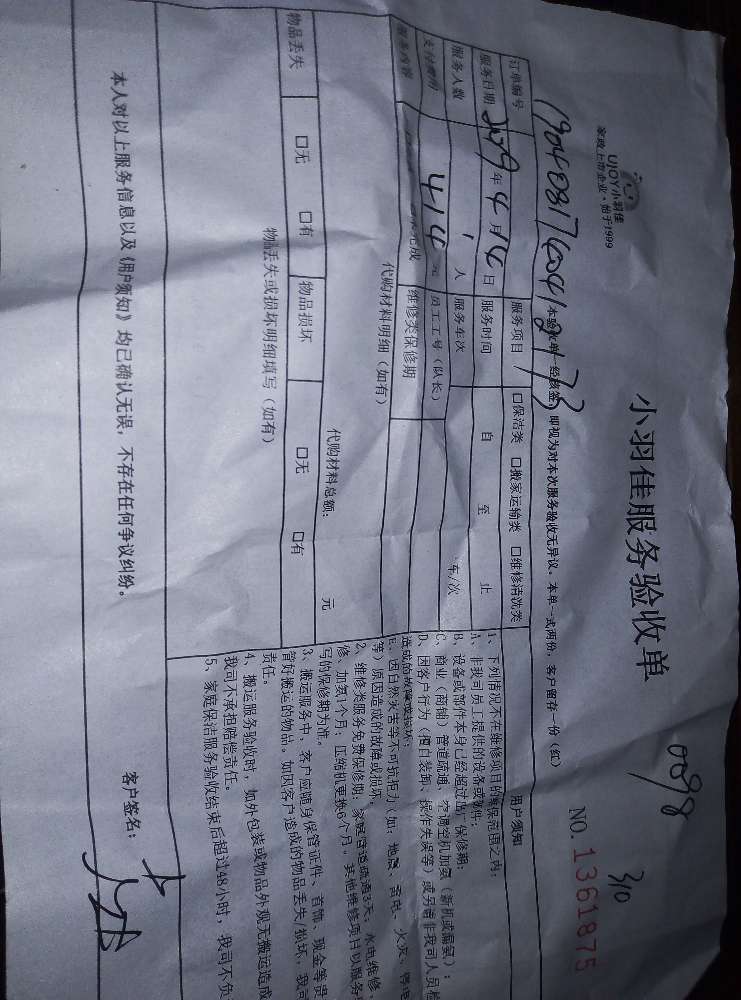 UJOY小羽佳
家政上市企业·始于1999
小羽佳服务验收单
0098
310
NO.1361875
本验收单一经核签，即视为对本次服务验收无异议。本单一式两份，客户留存一份（红）
订单编号
服务项目 □保洁类 □搬家运输类 □维修清洗类
服务日期 2019年4月14日 服务时间 自 至 止
服务人数 1人 服务车次 车/次
支付费用 414元 员工工号（队长）
服务内容 完成 维修类保修期
代购材料明细（如有）
代购材料总额： 元
物品丢失 □无 □有 物品损坏 □无 □有
物品丢失或损坏明细填写（如有）
用户须知
1、下列情况不在维修项目的维保范围之内：
A、非我司员工提供的设备或部件；
B、设备或部件本身已经超过出厂保修期；
C、商业（商铺）管道疏通、空调整机加氨（新机或漏氨）；
D、因客户行为（擅自装卸、操作失误等）或另请非我司人员检
造成的故障或损坏；
E、因自然灾害等不可抗拒力（如：地震、雷电、火灾、停电
等）原因造成的故障或损坏。
2、维修类服务免费保修期：家庭管道疏通3天；水电维修、
修、加氨1个月；压缩机更换6个月。其他维修项目以服务
写的保修期为准。
3、搬运服务中，客户应随身保管证件、首饰、现金等贵
管好搬运的物品。如因客户造成的物品丢失/损坏，我司
责任。
4、搬运服务验收时，如外包装或物品外观无搬运造成
我司不承担赔偿责任。
5、家庭保洁服务验收结束后超过48小时，我司不负
本人对以上服务信息以及《用户须知》均已确认无误，不存在任何争议纠纷。
客户签名：